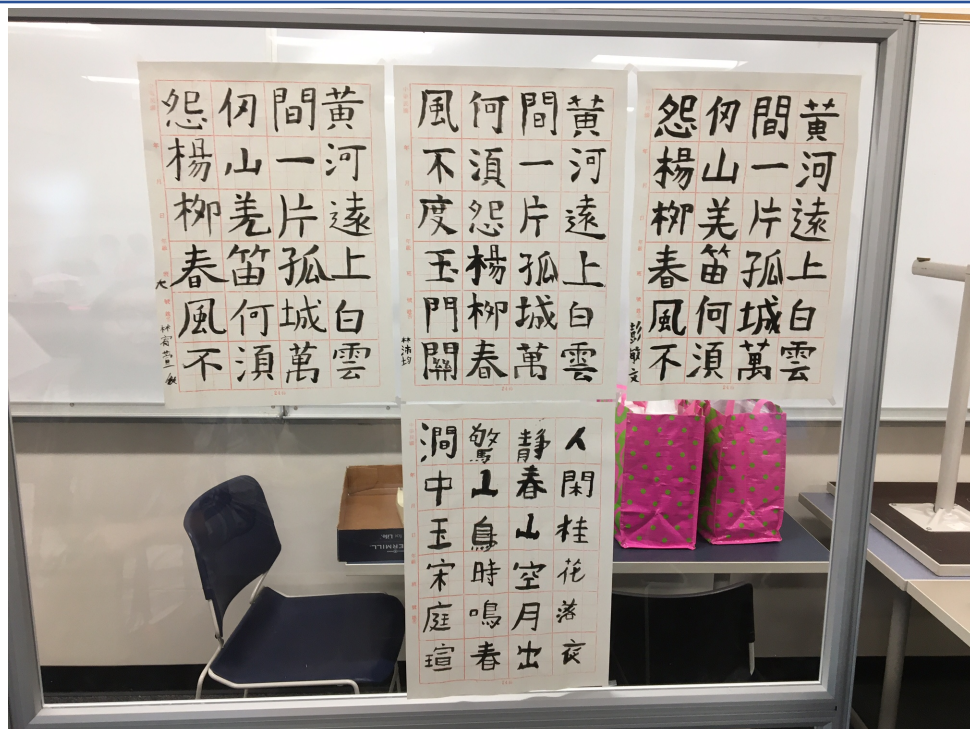 黃河遠上白雲
間一片孤城萬
仞山羌笛何湏
怨楊柳春風不
黃河遠上白雲
間一片孤城萬
何湏怨楊柳春
風不度玉門關
林沛均
黃河遠上白雲
間一片孤城萬
仞山美笛何湏
怨楊柳春風不
人閑桂花落夜
靜春山空月出
驚山鳥時鳴春
澗中玉宋庭瑄